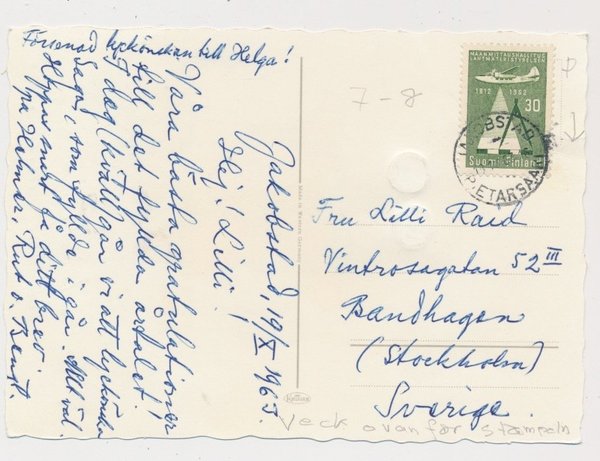 Jakobstad, 19/X 1963.
Hej! Lilli!
Våra bästa gratulationer
till det fyllda årtalet!
I dag (kväll) går vi att lyckönska
Saga, som fyllde i går. Allt väl.
Hoppas snart få ditt brev.
Helmer, Rut o. Bengt.
Försenad lyckönskan till Helga!
7-8
P
MAANMITTAUSHALLITUS
LANTMÄTERISTYRELSEN
1812 1962
30
Suomi Finland
JAKOBSTAD
PIETARSAARI
Fru Lilli Raid
Vintrosagatan 52 III
Bandhagen
(Stockholm)
Sverige.
Made in Western Germany
Krüger
Veck ovanför stämpeln